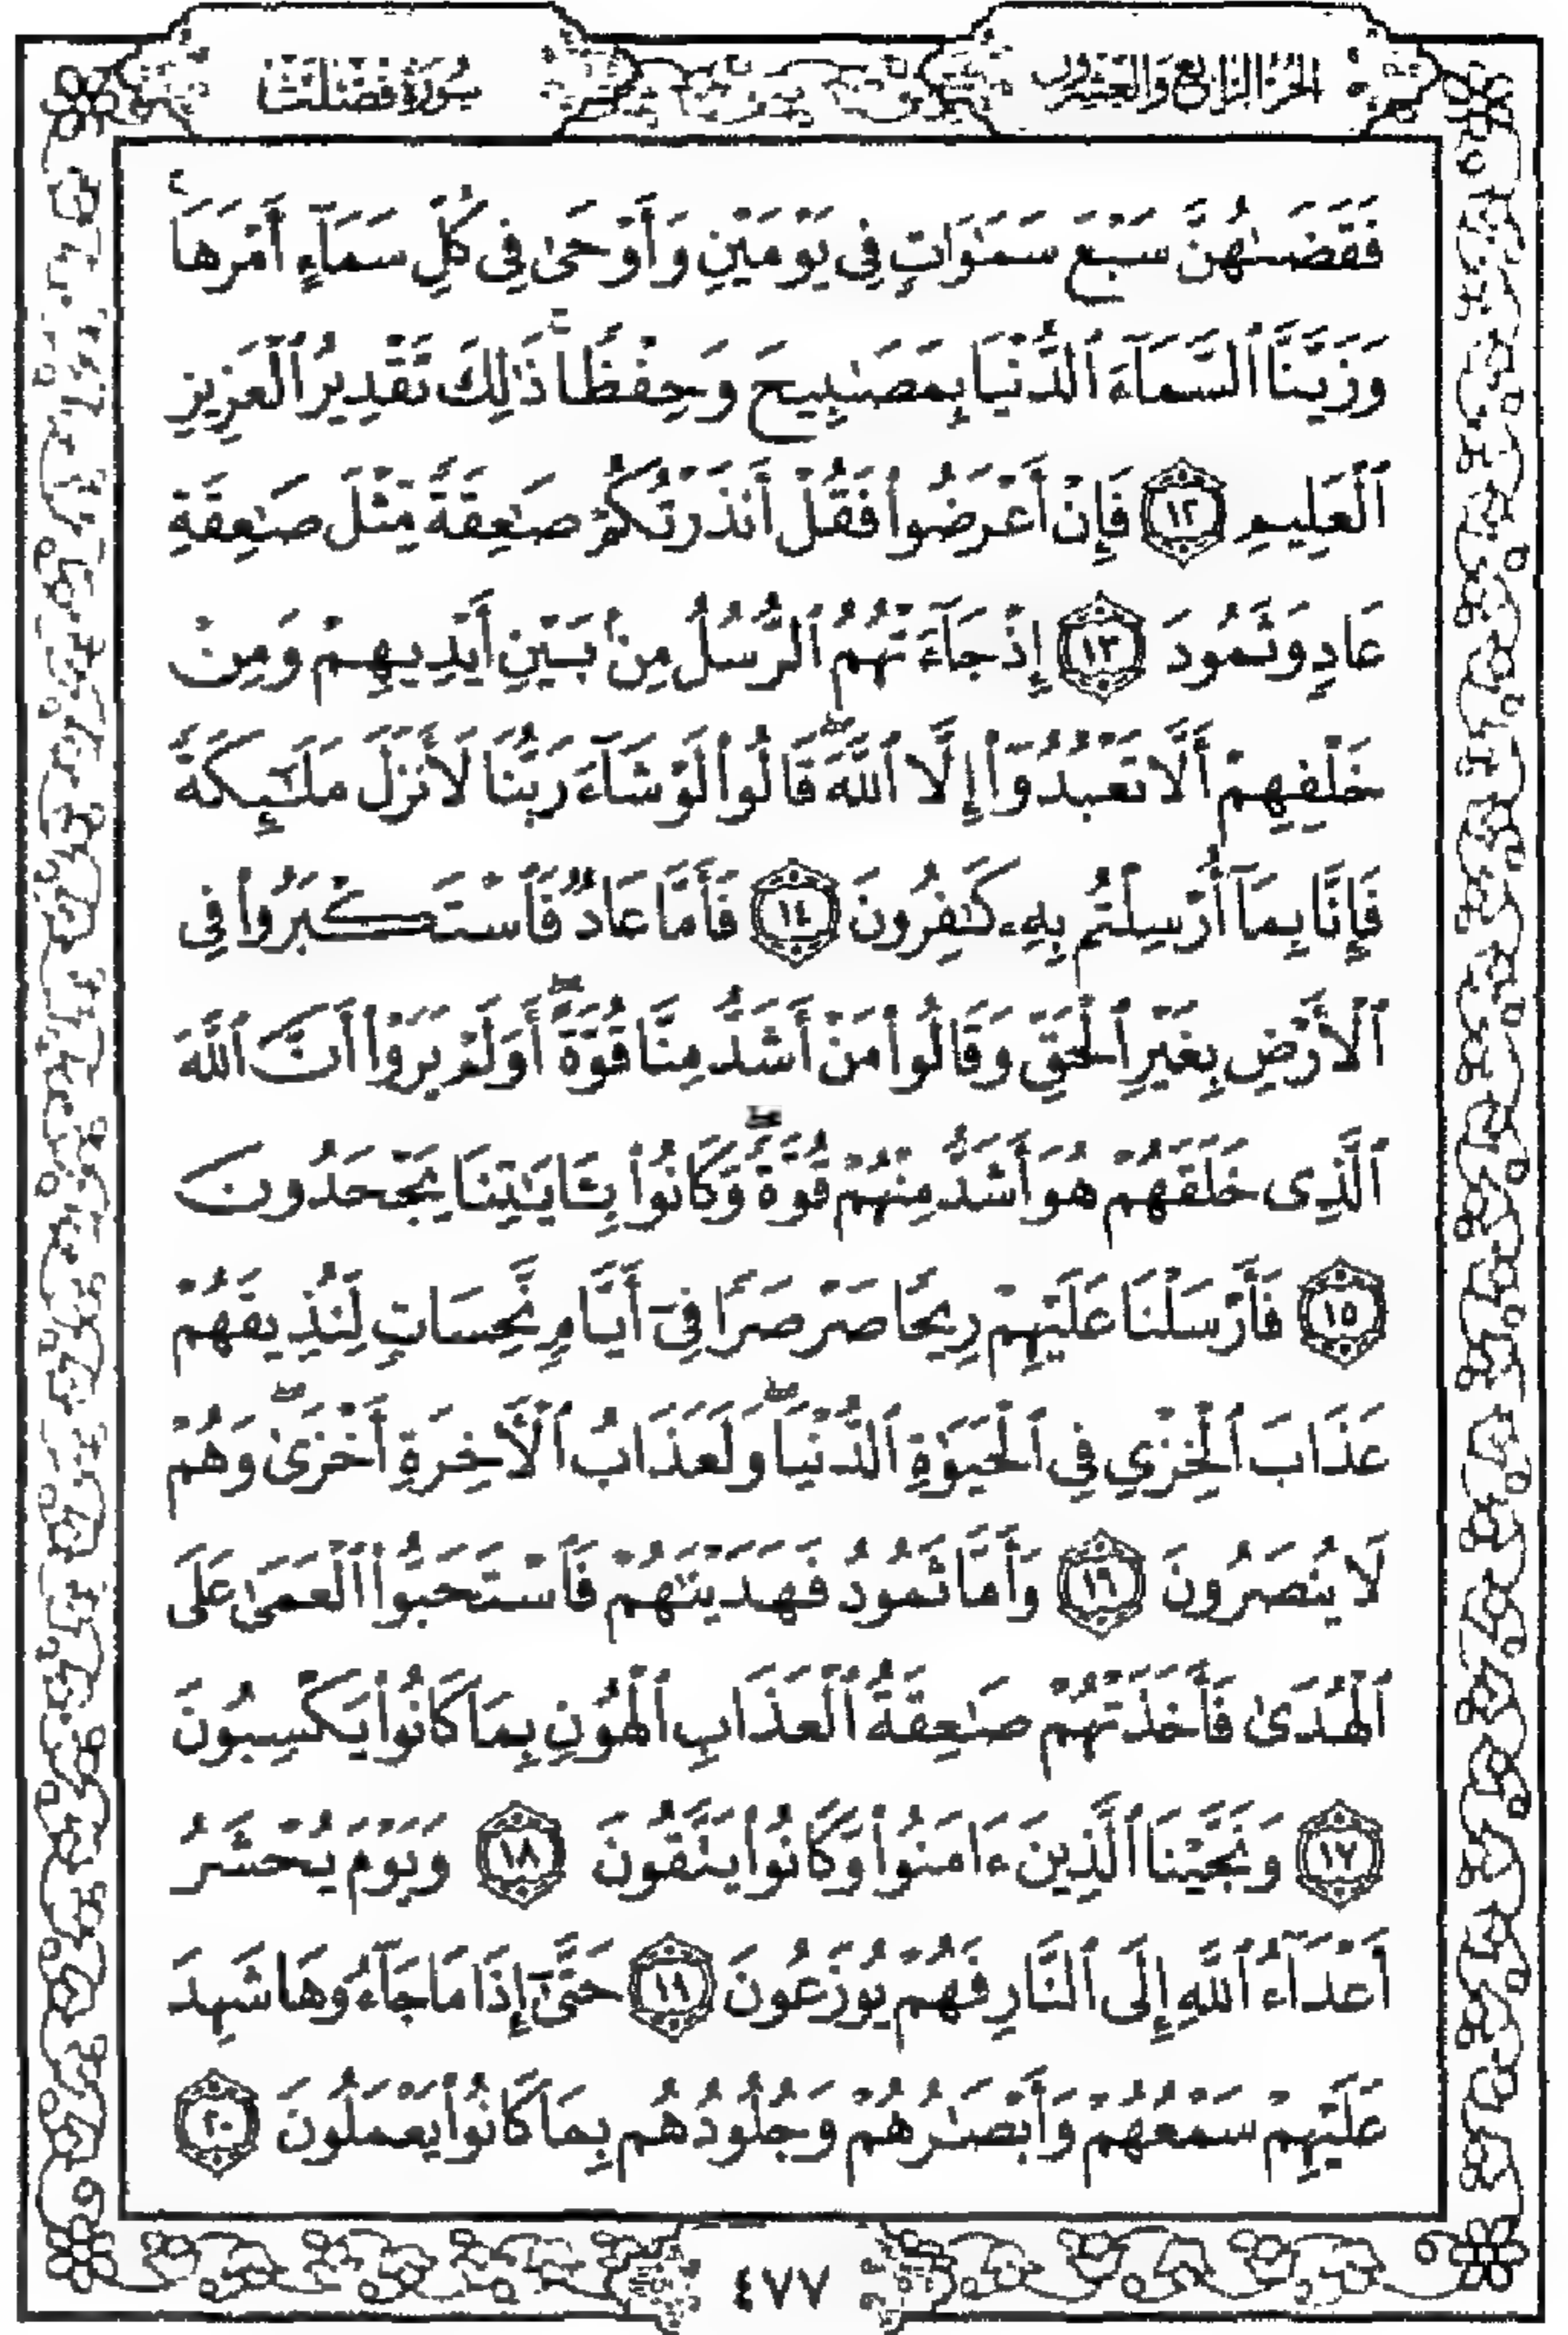 الجزء الرابع والعشرون
سورة فصلت
فَقَضَىٰهُنَّ سَبْعَ سَمَٰوَاتٍ فِى يَوْمَيْنِ وَأَوْحَىٰ فِى كُلِّ سَمَآءٍ أَمْرَهَا ۚ
وَزَيَّنَّا ٱلسَّمَآءَ ٱلدُّنْيَا بِمَصَٰبِيحَ وَحِفْظًا ۚ ذَٰلِكَ تَقْدِيرُ ٱلْعَزِيزِ
ٱلْعَلِيمِ ١٢ فَإِنْ أَعْرَضُوا۟ فَقُلْ أَنذَرْتُكُمْ صَٰعِقَةً مِّثْلَ صَٰعِقَةِ
عَادٍ وَثَمُودَ ١٣ إِذْ جَآءَتْهُمُ ٱلرُّسُلُ مِنۢ بَيْنِ أَيْدِيهِمْ وَمِنْ
خَلْفِهِمْ أَلَّا تَعْبُدُوٓا۟ إِلَّا ٱللَّهَ ۖ قَالُوا۟ لَوْ شَآءَ رَبُّنَا لَأَنزَلَ مَلَٰٓئِكَةً
فَإِنَّا بِمَآ أُرْسِلْتُم بِهِۦ كَٰفِرُونَ ١٤ فَأَمَّا عَادٌ فَٱسْتَكْبَرُوا۟ فِى
ٱلْأَرْضِ بِغَيْرِ ٱلْحَقِّ وَقَالُوا۟ مَنْ أَشَدُّ مِنَّا قُوَّةً ۖ أَوَلَمْ يَرَوْا۟ أَنَّ ٱللَّهَ
ٱلَّذِى خَلَقَهُمْ هُوَ أَشَدُّ مِنْهُمْ قُوَّةً ۖ وَكَانُوا۟ بِـَٔايَٰتِنَا يَجْحَدُونَ
١٥ فَأَرْسَلْنَا عَلَيْهِمْ رِيحًا صَرْصَرًا فِىٓ أَيَّامٍ نَّحِسَاتٍ لِّنُذِيقَهُمْ
عَذَابَ ٱلْخِزْيِ فِى ٱلْحَيَوٰةِ ٱلدُّنْيَا ۖ وَلَعَذَابُ ٱلْأَخِرَةِ أَخْزَىٰ ۖ وَهُمْ
لَا يُنصَرُونَ ١٦ وَأَمَّا ثَمُودُ فَهَدَيْنَٰهُمْ فَٱسْتَحَبُّوا۟ ٱلْعَمَىٰ عَلَى
ٱلْهُدَىٰ فَأَخَذَتْهُمْ صَٰعِقَةُ ٱلْعَذَابِ ٱلْهُونِ بِمَا كَانُوا۟ يَكْسِبُونَ
١٧ وَنَجَّيْنَا ٱلَّذِينَ ءَامَنُوا۟ وَكَانُوا۟ يَتَّقُونَ ١٨ وَيَوْمَ يُحْشَرُ
أَعْدَآءُ ٱللَّهِ إِلَى ٱلنَّارِ فَهُمْ يُوزَعُونَ ١٩ حَتَّىٰٓ إِذَا مَا جَآءُوهَا شَهِدَ
عَلَيْهِمْ سَمْعُهُمْ وَأَبْصَٰرُهُمْ وَجُلُودُهُم بِمَا كَانُوا۟ يَعْمَلُونَ ٢٠
٤٧٧